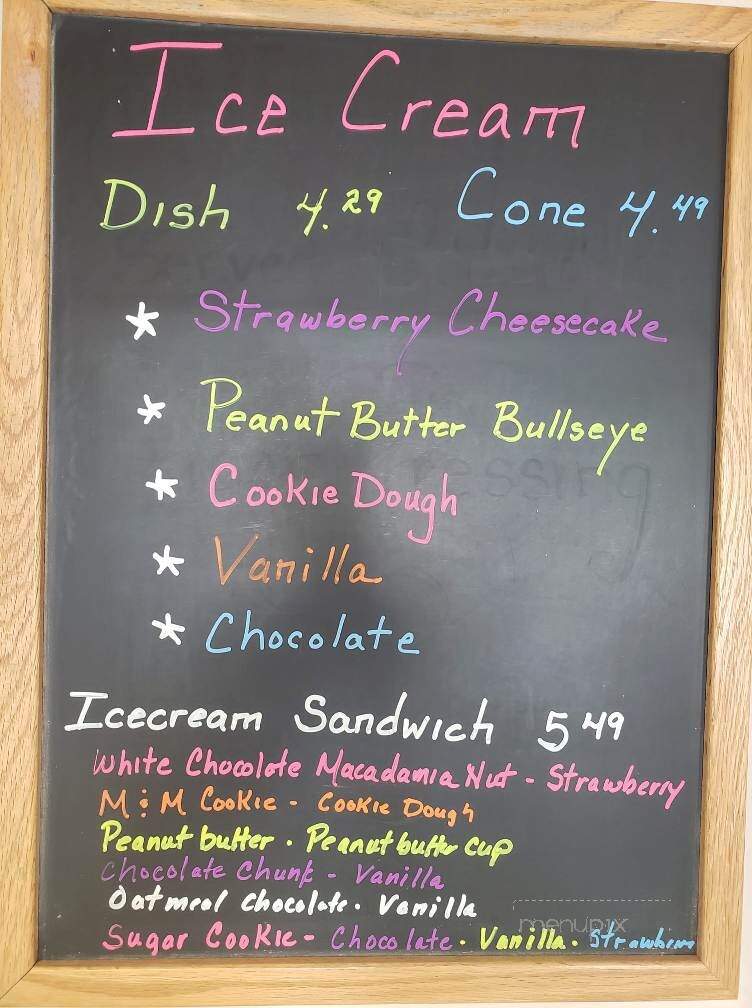 Ice Cream
Dish 4.29 Cone 4.49
* Strawberry Cheesecake
* Peanut Butter Bullseye
* Cookie Dough
* Vanilla
* Chocolate
Icecream Sandwich 5 49
White Chocolate Macadamia Nut - Strawberry
M & M Cookie - Cookie Dough
Peanut butter . Peanut butter cup
Chocolate Chunk - Vanilla
Oatmeal chocolate . Vanilla
menupix
Sugar Cookie - Chocolate . Vanilla .